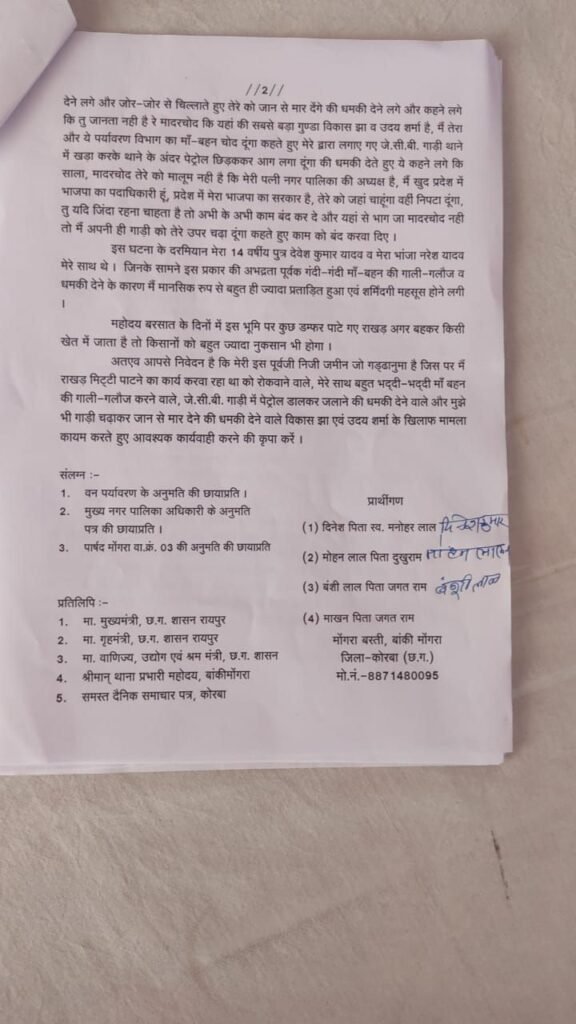 //2//
देने लगे और जोर-जोर से चिल्लाते हुए तेरे को जान से मार देंगे की धमकी देने लगे और कहने लगे
कि तु जानता नही है रे मादरचोद कि यहां की सबसे बड़ा गुण्डा विकास झा व उदय शर्मा है, मैं तेरा
और ये पर्यावरण विभाग का माँ-बहन चोद दूंगा कहते हुए मेरे द्वारा लगाए गए जे.सी.बी. गाड़ी थाने
में खड़ा करके थाने के अंदर पेट्रोल छिड़ककर आग लगा दूंगा की धमकी देते हुए ये कहने लगे कि
साला, मादरचोद तेरे को मालूम नही है कि मेरी पत्नी नगर पालिका की अध्यक्ष है, मैं खुद प्रदेश में
भाजपा का पदाधिकारी हूं, प्रदेश में मेरा भाजपा का सरकार है, तेरे को जहां चाहूंगा वहीं निपटा दूंगा,
तु यदि जिंदा रहना चाहता है तो अभी के अभी काम बंद कर दे और यहां से भाग जा मादरचोद नही
तो मैं अपनी ही गाड़ी को तेरे उपर चढ़ा दूंगा कहते हुए काम को बंद करवा दिए ।
इस घटना के दरमियान मेरा 14 वर्षीय पुत्र देवेश कुमार यादव व मेरा भांजा नरेश यादव
मेरे साथ थे । जिनके सामने इस प्रकार की अभद्रता पूर्वक गंदी-गंदी माँ-बहन की गाली-गलौज व
धमकी देने के कारण मैं मानसिक रुप से बहुत ही ज्यादा प्रताड़ित हुआ एवं शर्मिंदगी महसूस होने लगी
।
महोदय बरसात के दिनों में इस भूमि पर कुछ डम्फर पाटे गए राखड़ अगर बहकर किसी
खेत में जाता है तो किसानों को बहुत ज्यादा नुकसान भी होगा ।
अतएव आपसे निवेदन है कि मेरी इस पूर्वजी निजी जमीन जो गड्ढानुमा है जिस पर मैं
राखड़ मिट्टी पाटने का कार्य करवा रहा था को रोकवाने वाले, मेरे साथ बहुत भद्दी-भद्दी माँ बहन
की गाली-गलौज करने वाले, जे.सी.बी. गाड़ी में पेट्रोल डालकर जलाने की धमकी देने वाले और मुझे
भी गाड़ी चढ़ाकर जान से मार देने की धमकी देने वाले विकास झा एवं उदय शर्मा के खिलाफ मामला
कायम करते हुए आवश्यक कार्यवाही करने की कृपा करें ।
संलग्न :-
1. वन पर्यावरण के अनुमति की छायाप्रति ।
2. मुख्य नगर पालिका अधिकारी के अनुमति
पत्र की छायाप्रति ।
3. पार्षद मोंगरा वा.क्रं. 03 की अनुमति की छायाप्रति
प्रार्थीगण
(1) दिनेश पिता स्व. मनोहर लाल दिनेश कुमार
(2) मोहन लाल पिता दुखुराम मोहन लाल
(3) बंशी लाल पिता जगत राम बंशी लाल
(4) माखन पिता जगत राम
मोंगरा बस्ती, बांकी मोंगरा
जिला-कोरबा (छ.ग.)
मो.नं.-8871480095
प्रतिलिपि :-
1. मा. मुख्यमंत्री, छ.ग. शासन रायपुर
2. मा. गृहमंत्री, छ.ग. शासन रायपुर
3. मा. वाणिज्य, उद्योग एवं श्रम मंत्री, छ.ग. शासन
4. श्रीमान् थाना प्रभारी महोदय, बांकीमोंगरा
5. समस्त दैनिक समाचार पत्र, कोरबा